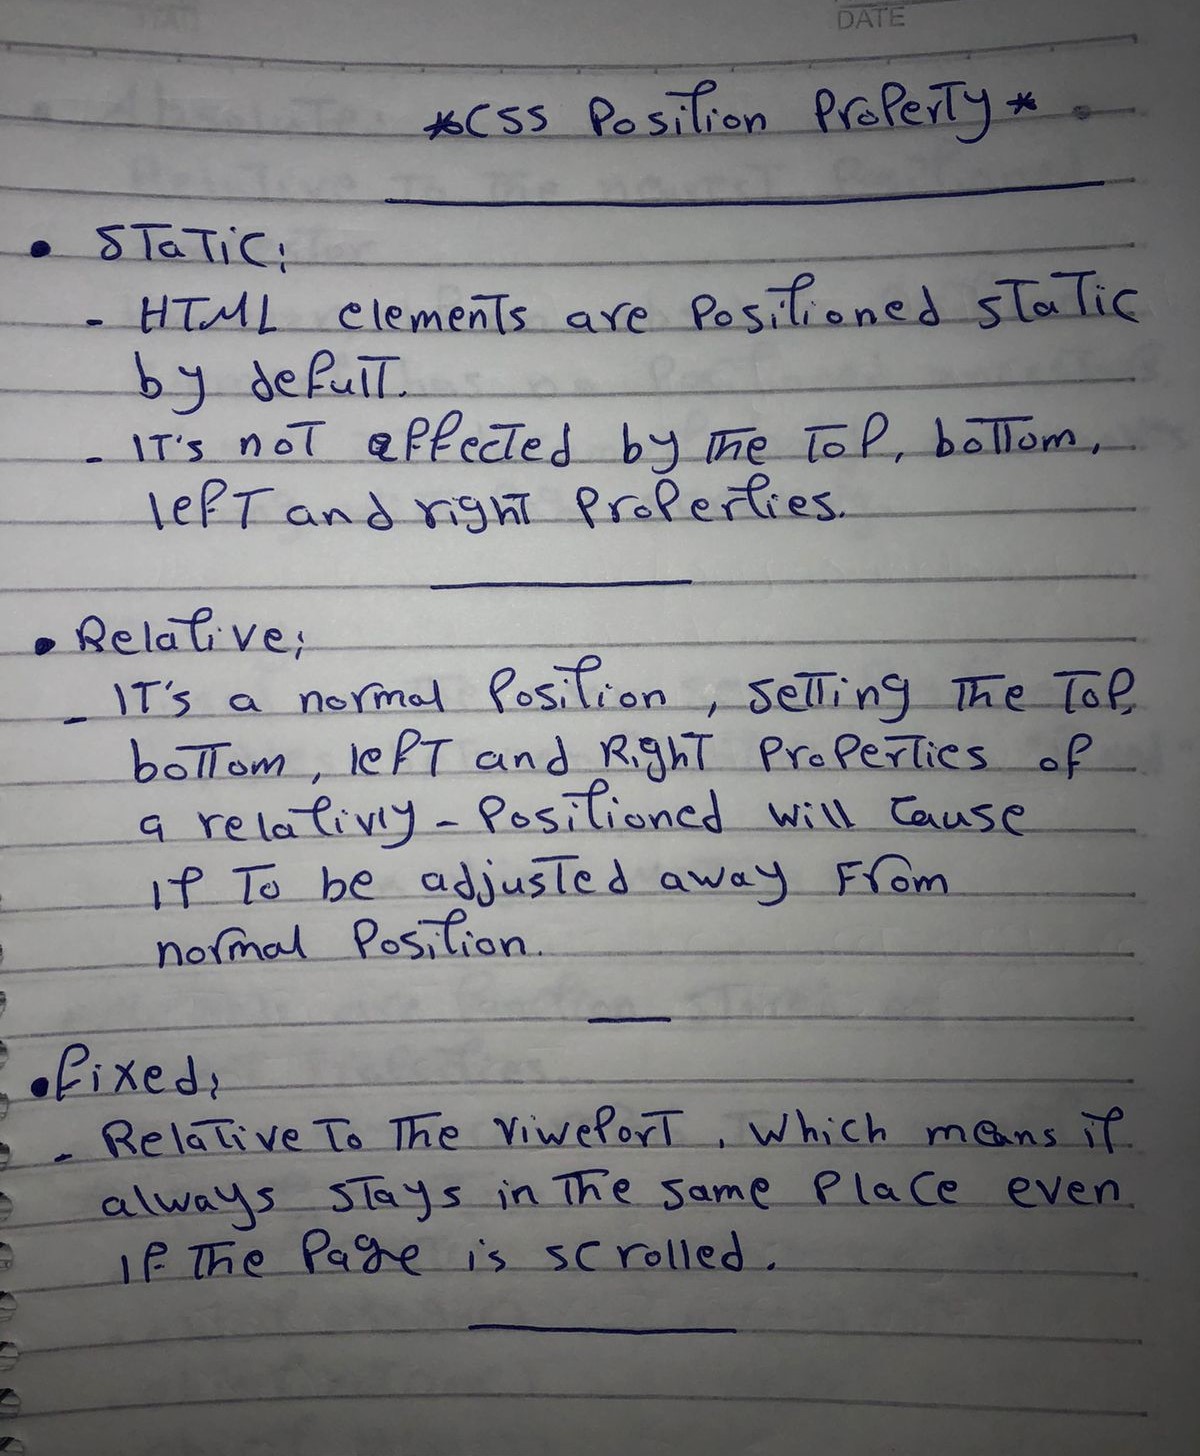 DATE
*CSS Position Property*
• Static:
- HTML elements are Positioned static
by defult.
- IT's not effected by the Top, bottom,
left and right Properties.
• Relative:
- IT's a normal Position, setting the Top,
bottom, left and Right Properties of
a relativly-Positioned will cause
it To be adjusted away From
normal Position.
• fixed:
- Relative To The viweport, which means it
always stays in The same Place even
if The Page is scrolled.